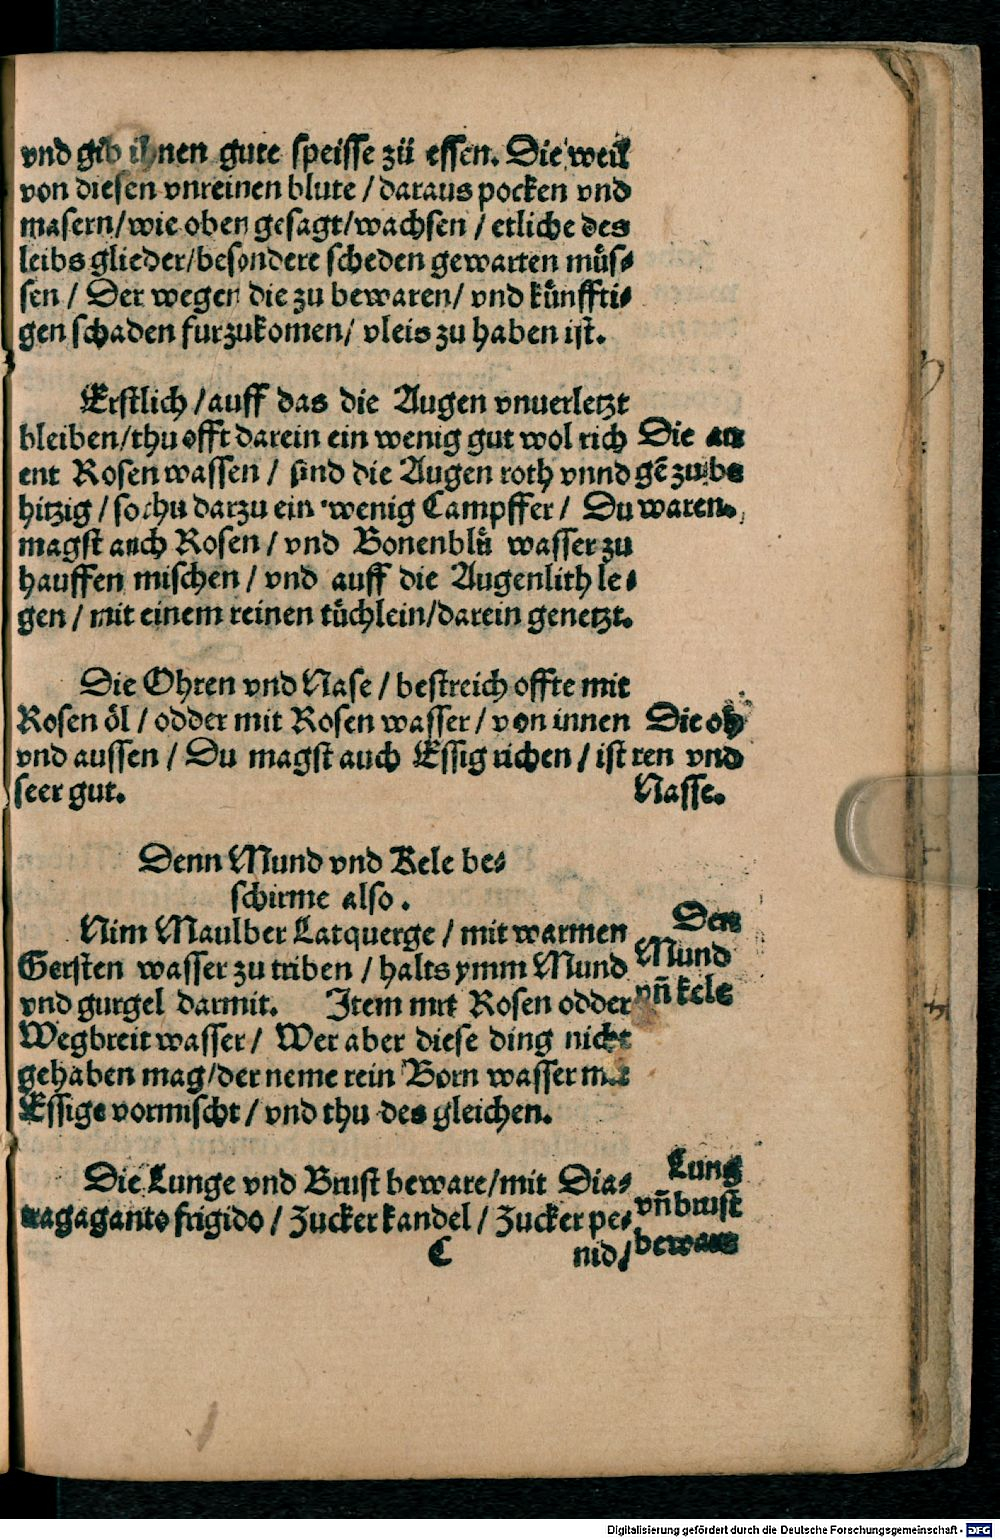 vnd gib ihnen gute speisse zü essen. Die weil
von diesen vnreinen blute / daraus pocken vnd
masern/wie oben gesagt/wachsen / etliche des
leibs glieder/besondere scheden gewarten müs⸗
sen / Der wegen die zu bewaren/ vnd künffti⸗
gen schaden furzukomen/ vleis zu haben ist.
Erstlich / auff das die Augen vnuerletzt
bleiben/thu offt darein ein wenig gut wol rich
ent Rosen wassen / sind die Augen roth vnnd
hitzig / so thu darzu ein wenig Campffer / Du
magst auch Rosen / vnd Bonenblü wasser zu
hauffen mischen / vnd auff die Augenlith le⸗
gen / mit einem reinen tüchlein/darein genetzt.
Die au
gē zu be
waren.
Die Ohren vnd Nase / bestreich offte mit
Rosen öl / odder mit Rosen wasser / von innen
vnd aussen / Du magst auch Essig richen / ist
seer gut.
Die oh
ren vnd
Nasse.
Denn Mund vnd Kele be⸗
schirme also.
Nim Maulber Latquerge / mit warmen
Gersten wasser zu triben / halts ymm Mund
vnd gurgel darmit. Item mit Rosen odder
Wegbreit wasser / Wer aber diese ding nicht
gehaben mag/der neme rein Born wasser mit
Essige vormischt / vnd thu des gleichen.
Den
Mund
vñ kele
Die Lunge vnd Brust beware/mit Dia⸗
tragaganto frigido / Zucker kandel / Zucker pe⸗
Lung
vñ brust
C nid/